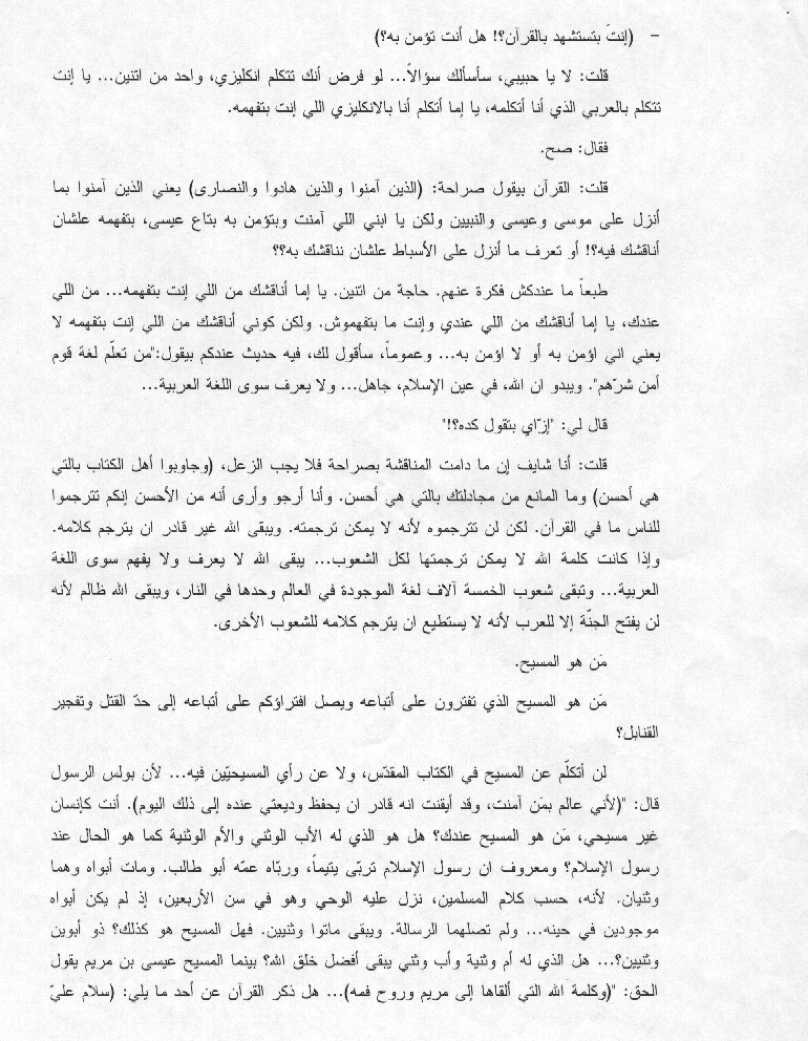 - (إنتَ بتستشهد بالقرآن؟! هل أنت تؤمن به؟)
قلت: لا يا حبيبي، سأسألك سؤالاً... لو فرض أنك تتكلم انكليزي، واحد من اتنين... يا إنت
تتكلم بالعربي الذي أنا أتكلمه، يا إما أتكلم أنا بالانكليزي اللي إنت بتفهمه.
فقال: صح.
قلت: القرآن بيقول صراحة: (الذين آمنوا والذين هادوا والنصارى) يعني الذين آمنوا بما
أنزل على موسى وعيسى والنبيين ولكن يا ابني اللي آمنت وبتؤمن به بتاع عيسى، بتفهمه علشان
أناقشك فيه؟! أو تعرف ما أنزل على الأسباط علشان نناقشك به؟؟
طبعاً ما عندكش فكرة عنهم. حاجة من اتنين. يا إما أناقشك من اللي إنت بتفهمه... من اللي
عندك، يا إما أناقشك من اللي عندي وإنت ما بتفهموش. ولكن كوني أناقشك من اللي إنت بتفهمه لا
يعني اني اؤمن به أو لا اؤمن به... وعموماً، سأقول لك، فيه حديث عندكم بيقول:"من تعلّم لغة قوم
أمن شرّهم". ويبدو ان الله، في عين الإسلام، جاهل... ولا يعرف سوى اللغة العربية...
قال لي: "إزّاي بتقول كده؟!"
قلت: أنا شايف إن ما دامت المناقشة بصراحة فلا يجب الزعل، (وجاوبوا أهل الكتاب بالتي
هي أحسن) وما المانع من مجادلتك بالتي هي أحسن. وأنا أرجو وأرى أنه من الأحسن إنكم تترجموا
للناس ما في القرآن. لكن لن تترجموه لأنه لا يمكن ترجمته. ويبقى الله غير قادر ان يترجم كلامه.
وإذا كانت كلمة الله لا يمكن ترجمتها لكل الشعوب... يبقى الله لا يعرف ولا يفهم سوى اللغة
العربية... وتبقى شعوب الخمسة آلاف لغة الموجودة في العالم وحدها في النار، ويبقى الله ظالم لأنه
لن يفتح الجنّة إلا للعرب لأنه لا يستطيع ان يترجم كلامه للشعوب الأخرى.
مَن هو المسيح.
مَن هو المسيح الذي تفترون على أتباعه ويصل افتراؤكم على أتباعه إلى حدّ القتل وتفجير
القنابل؟
لن أتكلّم عن المسيح في الكتاب المقدّس، ولا عن رأي المسيحيّين فيه... لأن بولس الرسول
قال: "(لأني عالم بمَن آمنت، وقد أيقنت انه قادر ان يحفظ وديعتي عنده إلى ذلك اليوم). أنت كإنسان
غير مسيحي، مَن هو المسيح عندك؟ هل هو الذي له الأب الوثني والأم الوثنية كما هو الحال عند
رسول الإسلام؟ ومعروف ان رسول الإسلام تربّى يتيماً، وربّاه عمّه أبو طالب. ومات أبواه وهما
وثنيان. لأنه، حسب كلام المسلمين، نزل عليه الوحي وهو في سن الأربعين، إذ لم يكن أبواه
موجودين في حينه... ولم تصلهما الرسالة. ويبقى ماتوا وثنيين. فهل المسيح هو كذلك؟ ذو أبوين
وثنيين؟... هل الذي له أم وثنية وأب وثني يبقى أفضل خلق الله؟ بينما المسيح عيسى بن مريم يقول
الحق: "(وكلمة الله التي ألقاها إلى مريم وروح فمه)... هل ذكر القرآن عن أحد ما يلي: (سلام عليّ